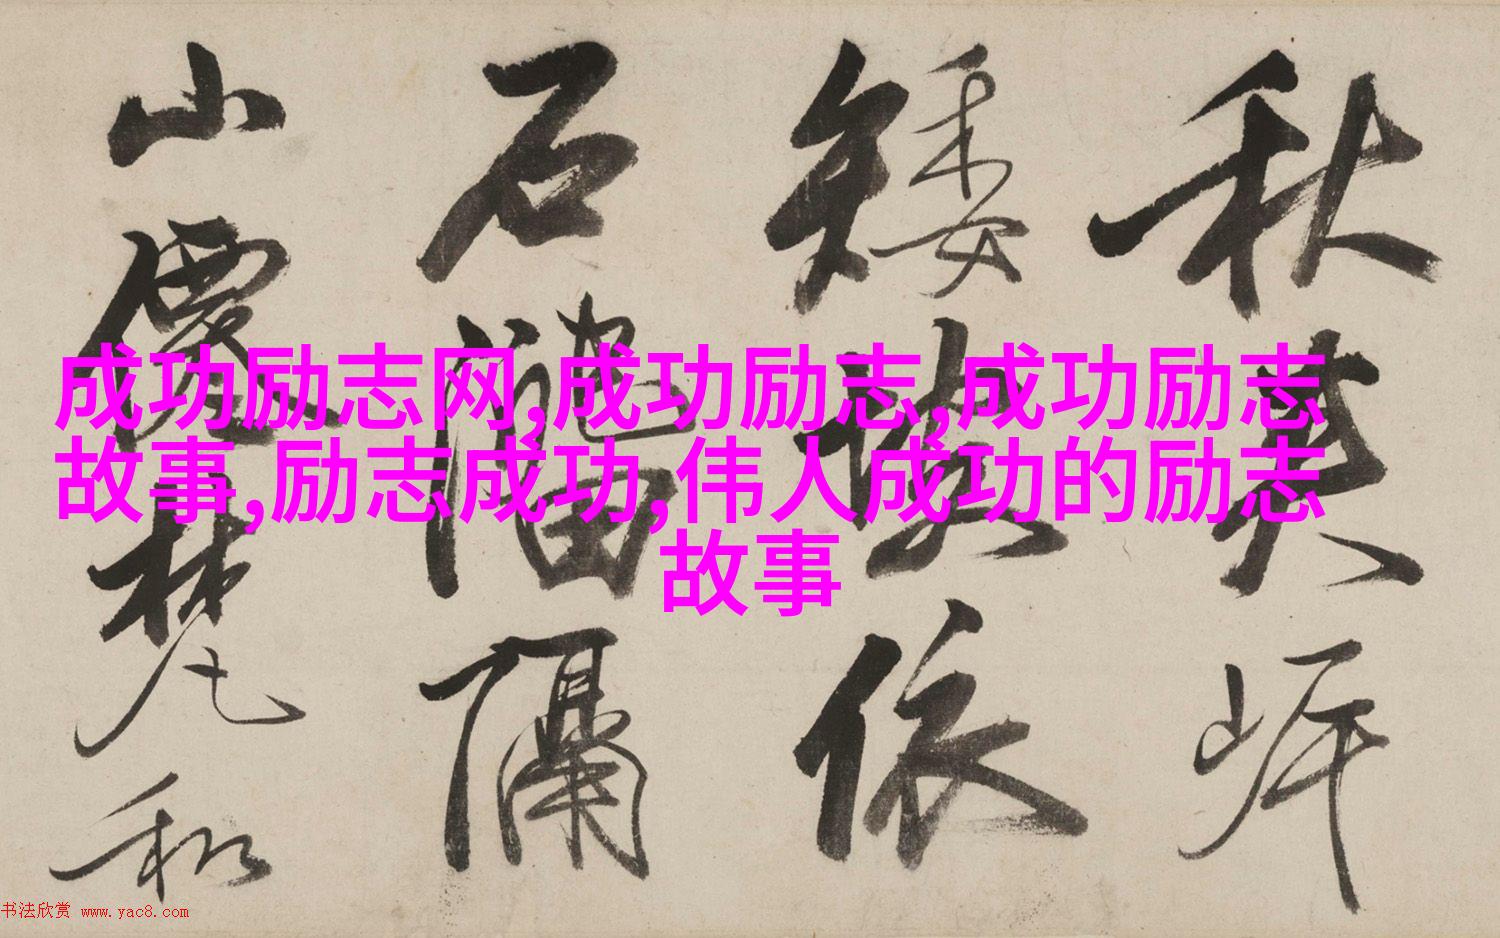 秋英
矮依
石隔
山梵和
成功励志网,成功励志,成功励志
故事,励志成功,伟人成功的励志
故事
书法欣赏 www.yac8.com